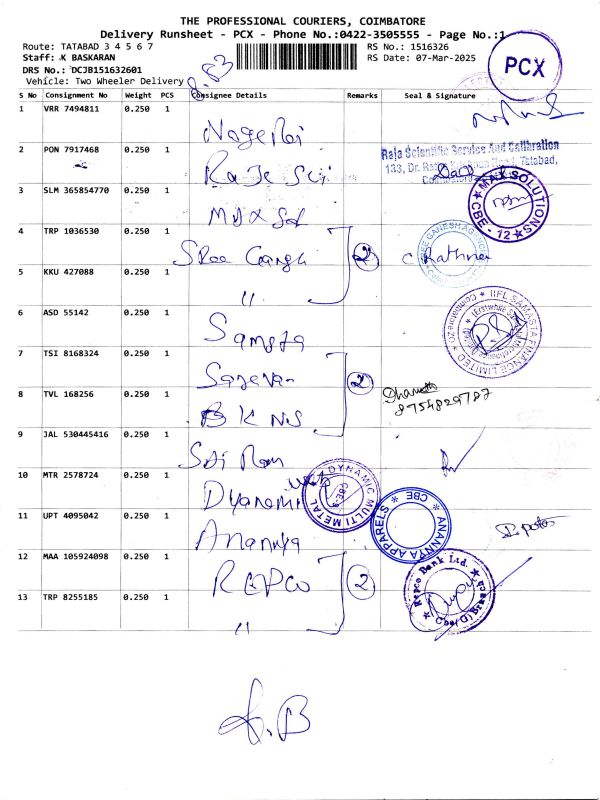 THE PROFESSIONAL COURIERS, COIMBATORE
Delivery Runsheet - PCX - Phone No.:0422-3505555 - Page No.:1
Route: TATABAD 3 4 5 6 7
RS No.: 1516326
Staff: K BASKARAN
RS Date: 07-Mar-2025
DRS No.: DCJB151632601
Vehicle: Two Wheeler Delivery
PCX
S No Consignment No Weight PCS Consignee Details Remarks Seal & Signature
1 VRR 7494811 0.250 1
2 PON 7917468 0.250 1 Raje Sci
Raja Scientific Service And Calibration
3 SLM 365854770 0.250 1 Max Sol
MAX SOLUTIONS CBE - 12
4 TRP 1036530 0.250 1 Sree Gangh 2 C Rathna
5 KKU 427088 0.250 1 "
6 ASD 55142 0.250 1 Samsta
IIFL SAMASTA FINANCE LIMITED Coimbatore
7 TSI 8168324 0.250 1 2
8 TVL 168256 0.250 1 B K NS
8754829787
9 JAL 530445416 0.250 1 Sri Ram
10 MTR 2578724 0.250 1 Dynamic
DYNAMIC MULTI METAL CBE-6
11 UPT 4095042 0.250 1 Ananya
ANANNYA APPARELS CBE
12 MAA 105924098 0.250 1 REPCO 2
Repco Bank Ltd.
13 TRP 8255185 0.250 1 "
K.B